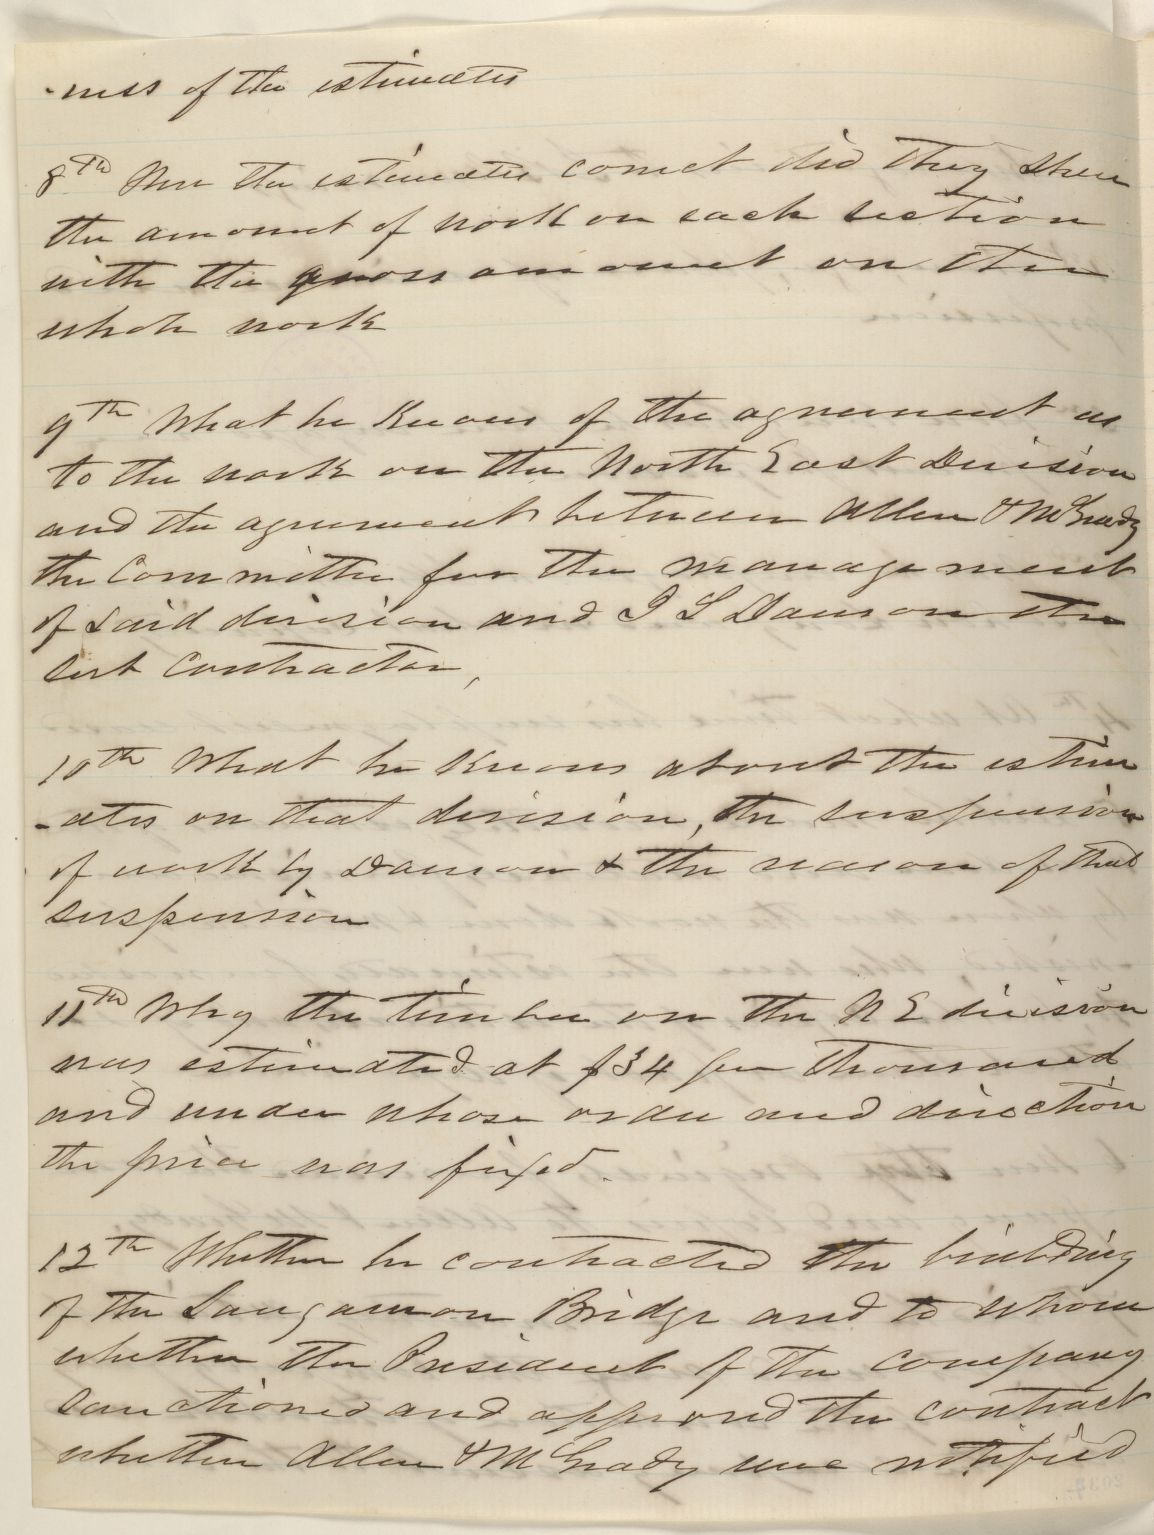 -ness of the estimates
8th Were the estimates correct did they shew
the amount of work on each section
with the gross amount on the
whole work
9th What he knows of the agreement as
to the work on the North East Division
and the agreement between Allen & McGrady
the Committee for the management
of said division and I S Dawson the
sub contractor,
10th What he knows about the estim
-ates on that division, the suspension
of work by Dawson & the reason of that
suspension
11th Why the timber on the N E division
was estimated at $34 per thousand
and under whose order and direction
the price was fixed.
12th Whether he contracted the building
of the Sangamon Bridge and to whom
whether the President of the company
sanctioned and approved the contract
whether Allen & McGrady were notified